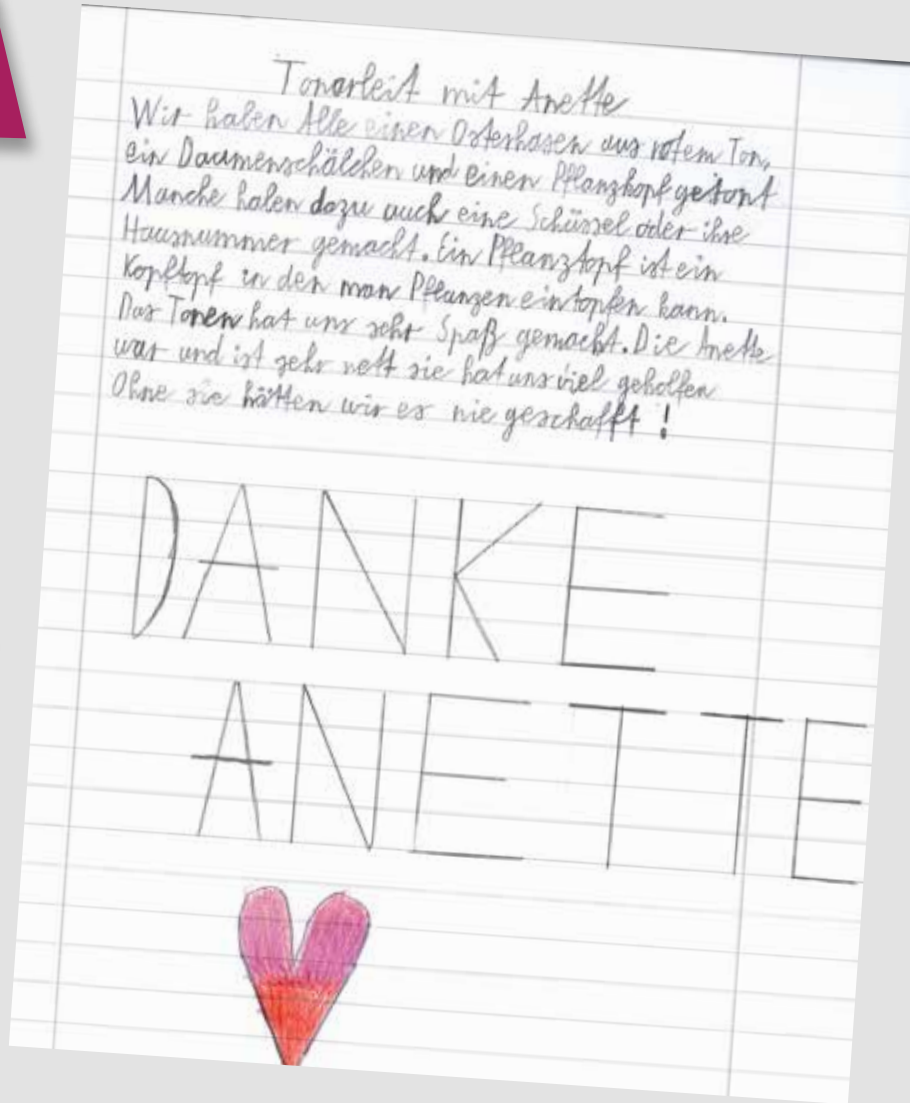 Tonarbeit mit Anette
Wir haben Alle einen Osterhasen aus rotem Ton,
ein Daumenschälchen und einen Pflanzkopf getont
Manche haben dazu auch eine Schüssel oder ihre
Hausnummer gemacht. Ein Pflanztopf ist ein
Kopftopf in den man Pflanzen eintopfen kann.
Das Tonen hat uns sehr Spaß gemacht. Die Anette
war und ist sehr nett sie hat uns viel geholfen
Ohne sie hätten wir es nie geschafft !
DANKE
ANETTE